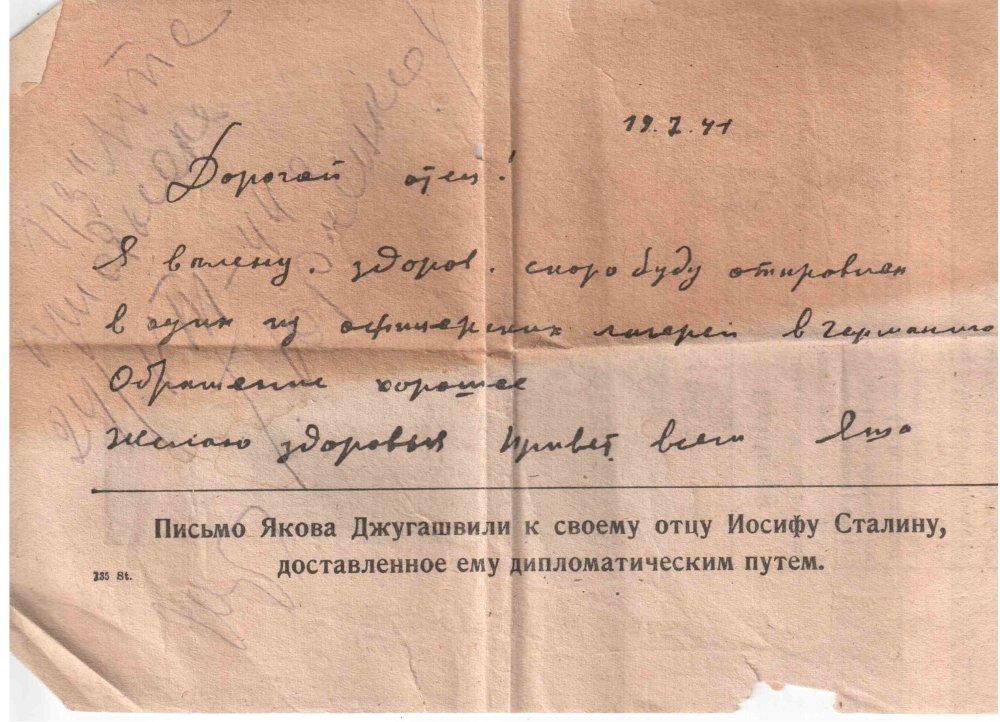 19.7.41
Дорогой отец!
Я в плену. здоров. скоро буду отправлен
в один из офицерских лагерей в Германию
Обращение хорошее
Желаю здоровья Привет всем Яша
Письмо Якова Джугашвили к своему отцу Иосифу Сталину,
доставленное ему дипломатическим путем.
235 St.